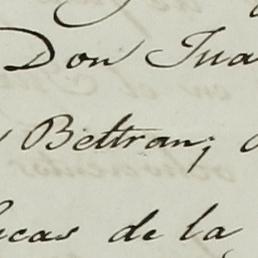 Don Jua
Beltran;
ucas de la